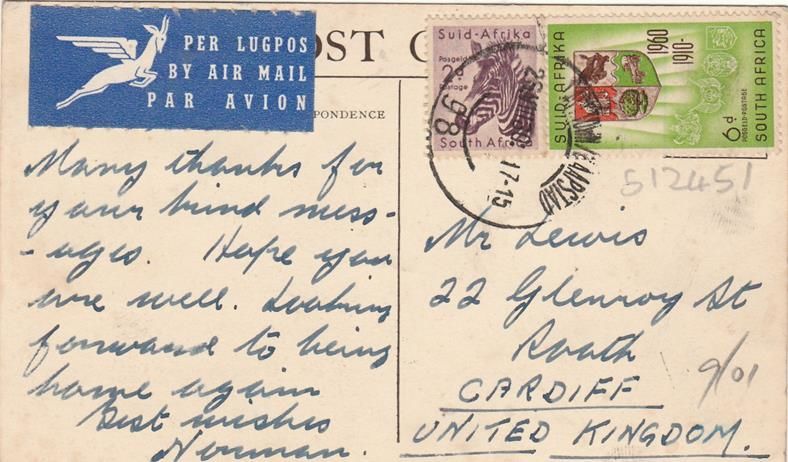 PER LUGPOS
BY AIR MAIL
PAR AVION
OST C
PONDENCE
Suid-Afrika
Posgeld
2d
Postage
South Afri
SUID-AFRIKA
1910-1960
6d
POSGELD-POSTAGE
SOUTH AFRICA
17-15
98
KAAPSTAD
512451
Many thanks for
your kind mess-
-ages. Hope you
are well. Looking
forward to being
home again
Best wishes
Norman.
Mr Lewis
22 Glenroy St
Roath
CARDIFF
UNITED KINGDOM.
9/01